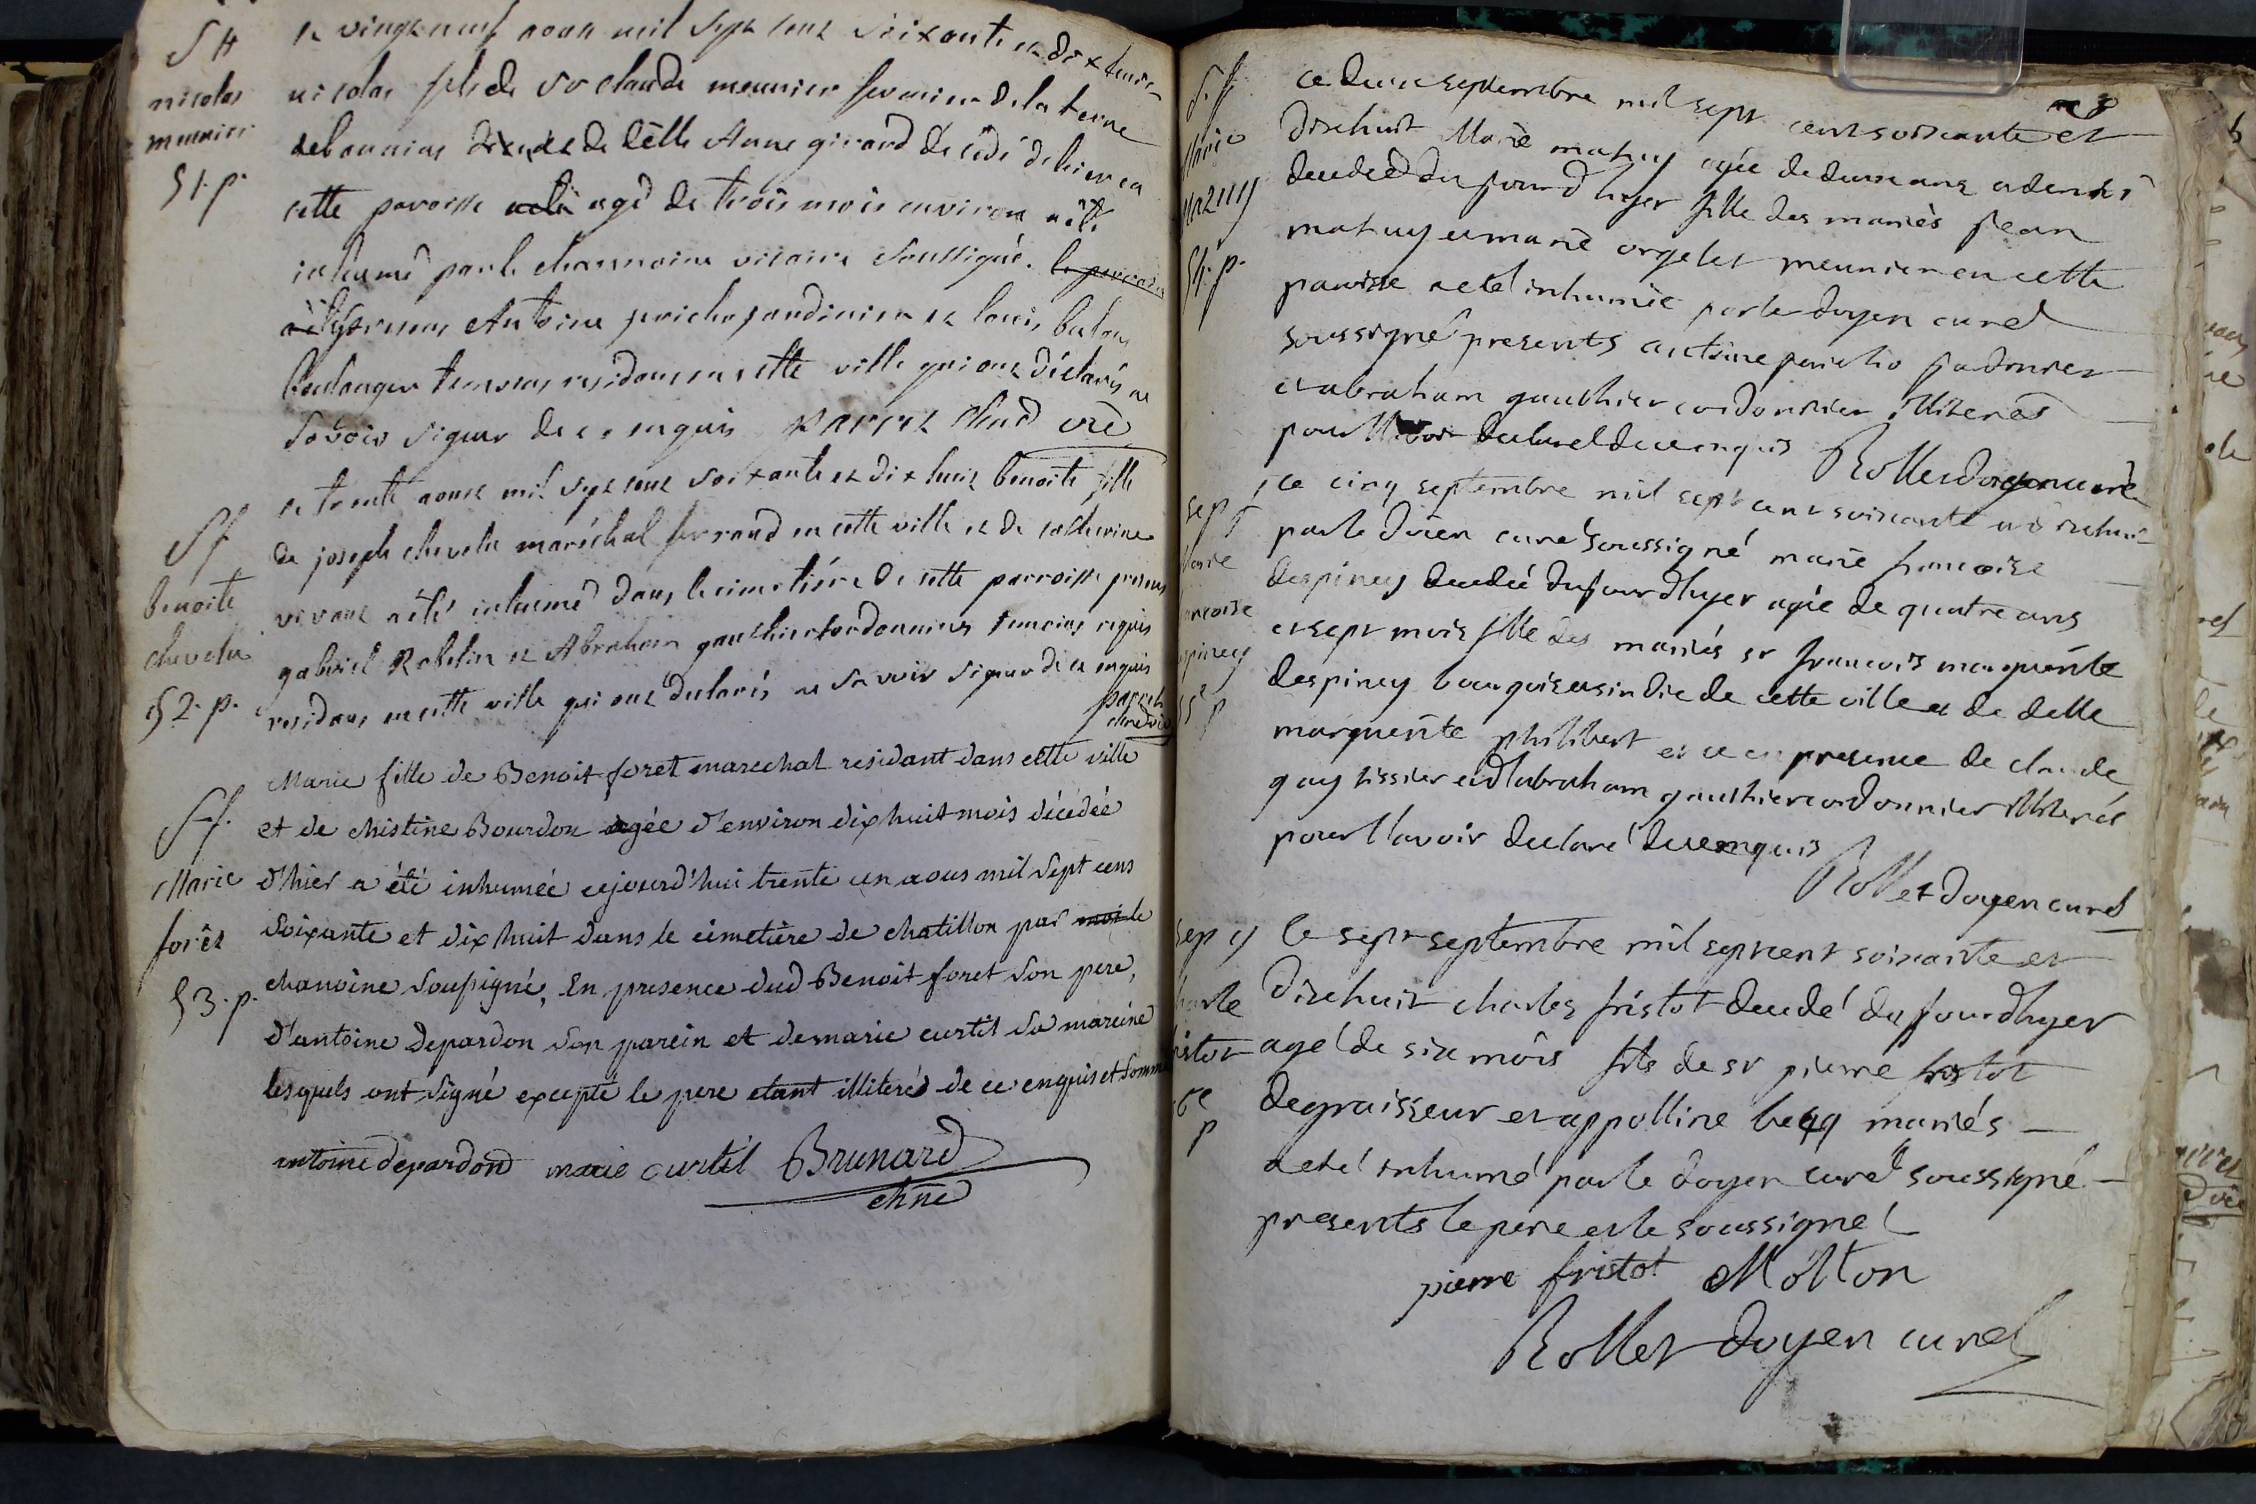 S H
nicolas
meunier
51. p.
le vingt neuf aoust mil sept cent soixante et dix huit
nicolas fils de sr claude meunier fermier de la terre
de et de delle Anne girard décédé d'hier en
cette paroisse agé de trois mois environ a été
inhumé par le channoine vicaire soussigné.
Antoine jardinier et louis
boulanger temoins residans en cette ville qui ont déclarés ne
savoir signer de ce enquis parret chne vre
Sf
benoite
chevelu
52. p.
le trente aoust mil sept cent soixante et dix huit benoite fille
de joseph chevelu maréchal ferrand en cette ville et de catherine
vivant a été inhumé dans le cimetiére de cette parroisse presens
gabriel Robelin et Abraham gauthier cordonniers temoins requis
residans en cette ville qui ont declarés ne savoir signer de ce enquis
parret
chne vre
S f.
Marie
forêt
53. p.
Marie fille de Benoit foret marechal residant dans cette ville
et de christine Bourdon agée d'environ dix huit mois décédée
d'hier a été inhumée cejourd'huit trente un aous mil sept cens
soixante et dix huit dans le cimetière de chatillon par moi le
chanoine soussigné, En presence dud Benoit foret son pere,
d'antoine depardon son parein et de marie curtil sa mareine
lesquels ont signé excepté le pere etant illiteré de ce enquis et sommé
antoine depardon marie curtil Brunard
chne
S. f
Marie
54. p.
ce deux septembre mil sept cent soixante et
dixhuit Marie matuy agée de deux ans et demi
decedée du jourd'hyer fille des mariés jean
matuy et marie orgelet meunier en cette
paroisse a eté inhumée par le doyen curé
soussigné presents antoine jardinier
et abraham gauthier cordonnier illiterés
pour l'avoir declaré de ce enquis Rollet doyen curé
ce cinq septembre mil sept cent soixante et dixhuit
par le doien curé soussigné marie francoise
despiney decedée du jourd'hyer agée de quatre ans
et sept mois fille des mariés sr francois marguerite
despiney bourgois et sindic de cette ville et de delle
marguerite philibert et ce en presence de claude
guy tissier et d'abraham gauthier cordonnier illiterés
pour l'avoir declaré de ce enquis
Rollet doyen curé
le sept septembre mil sept cent soixante et
dixhuit charles fristot decedé du jourd'hyer
agé de six mois fils de sr pierre fristot
degraisseur et appolline becq mariés
a eté inhumé par le doyen curé soussigné
presents le pere et le soussigné
pierre fristot Molton
Rollet doyen curé